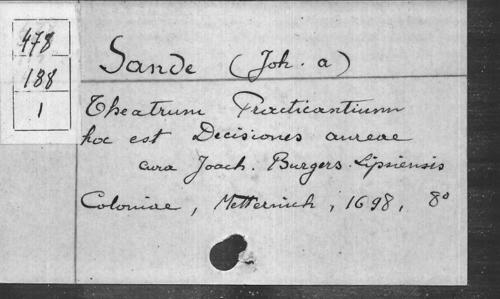 478
188
1
Sande (Joh. a)
Theatrum Practicantium
hoc est Decisiones aureae
cura Joach. Burgers. Lipsiensis
Coloniae, Metternich, 1698, 8º